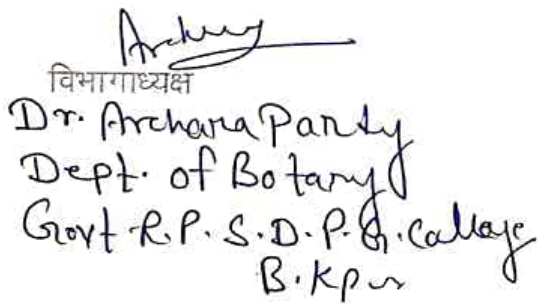 Archu
विभागाध्यक्ष
Dr. Archana Pandy
Dept. of Botany
Govt. R.P.S.D.P.G. College
B.Kpur